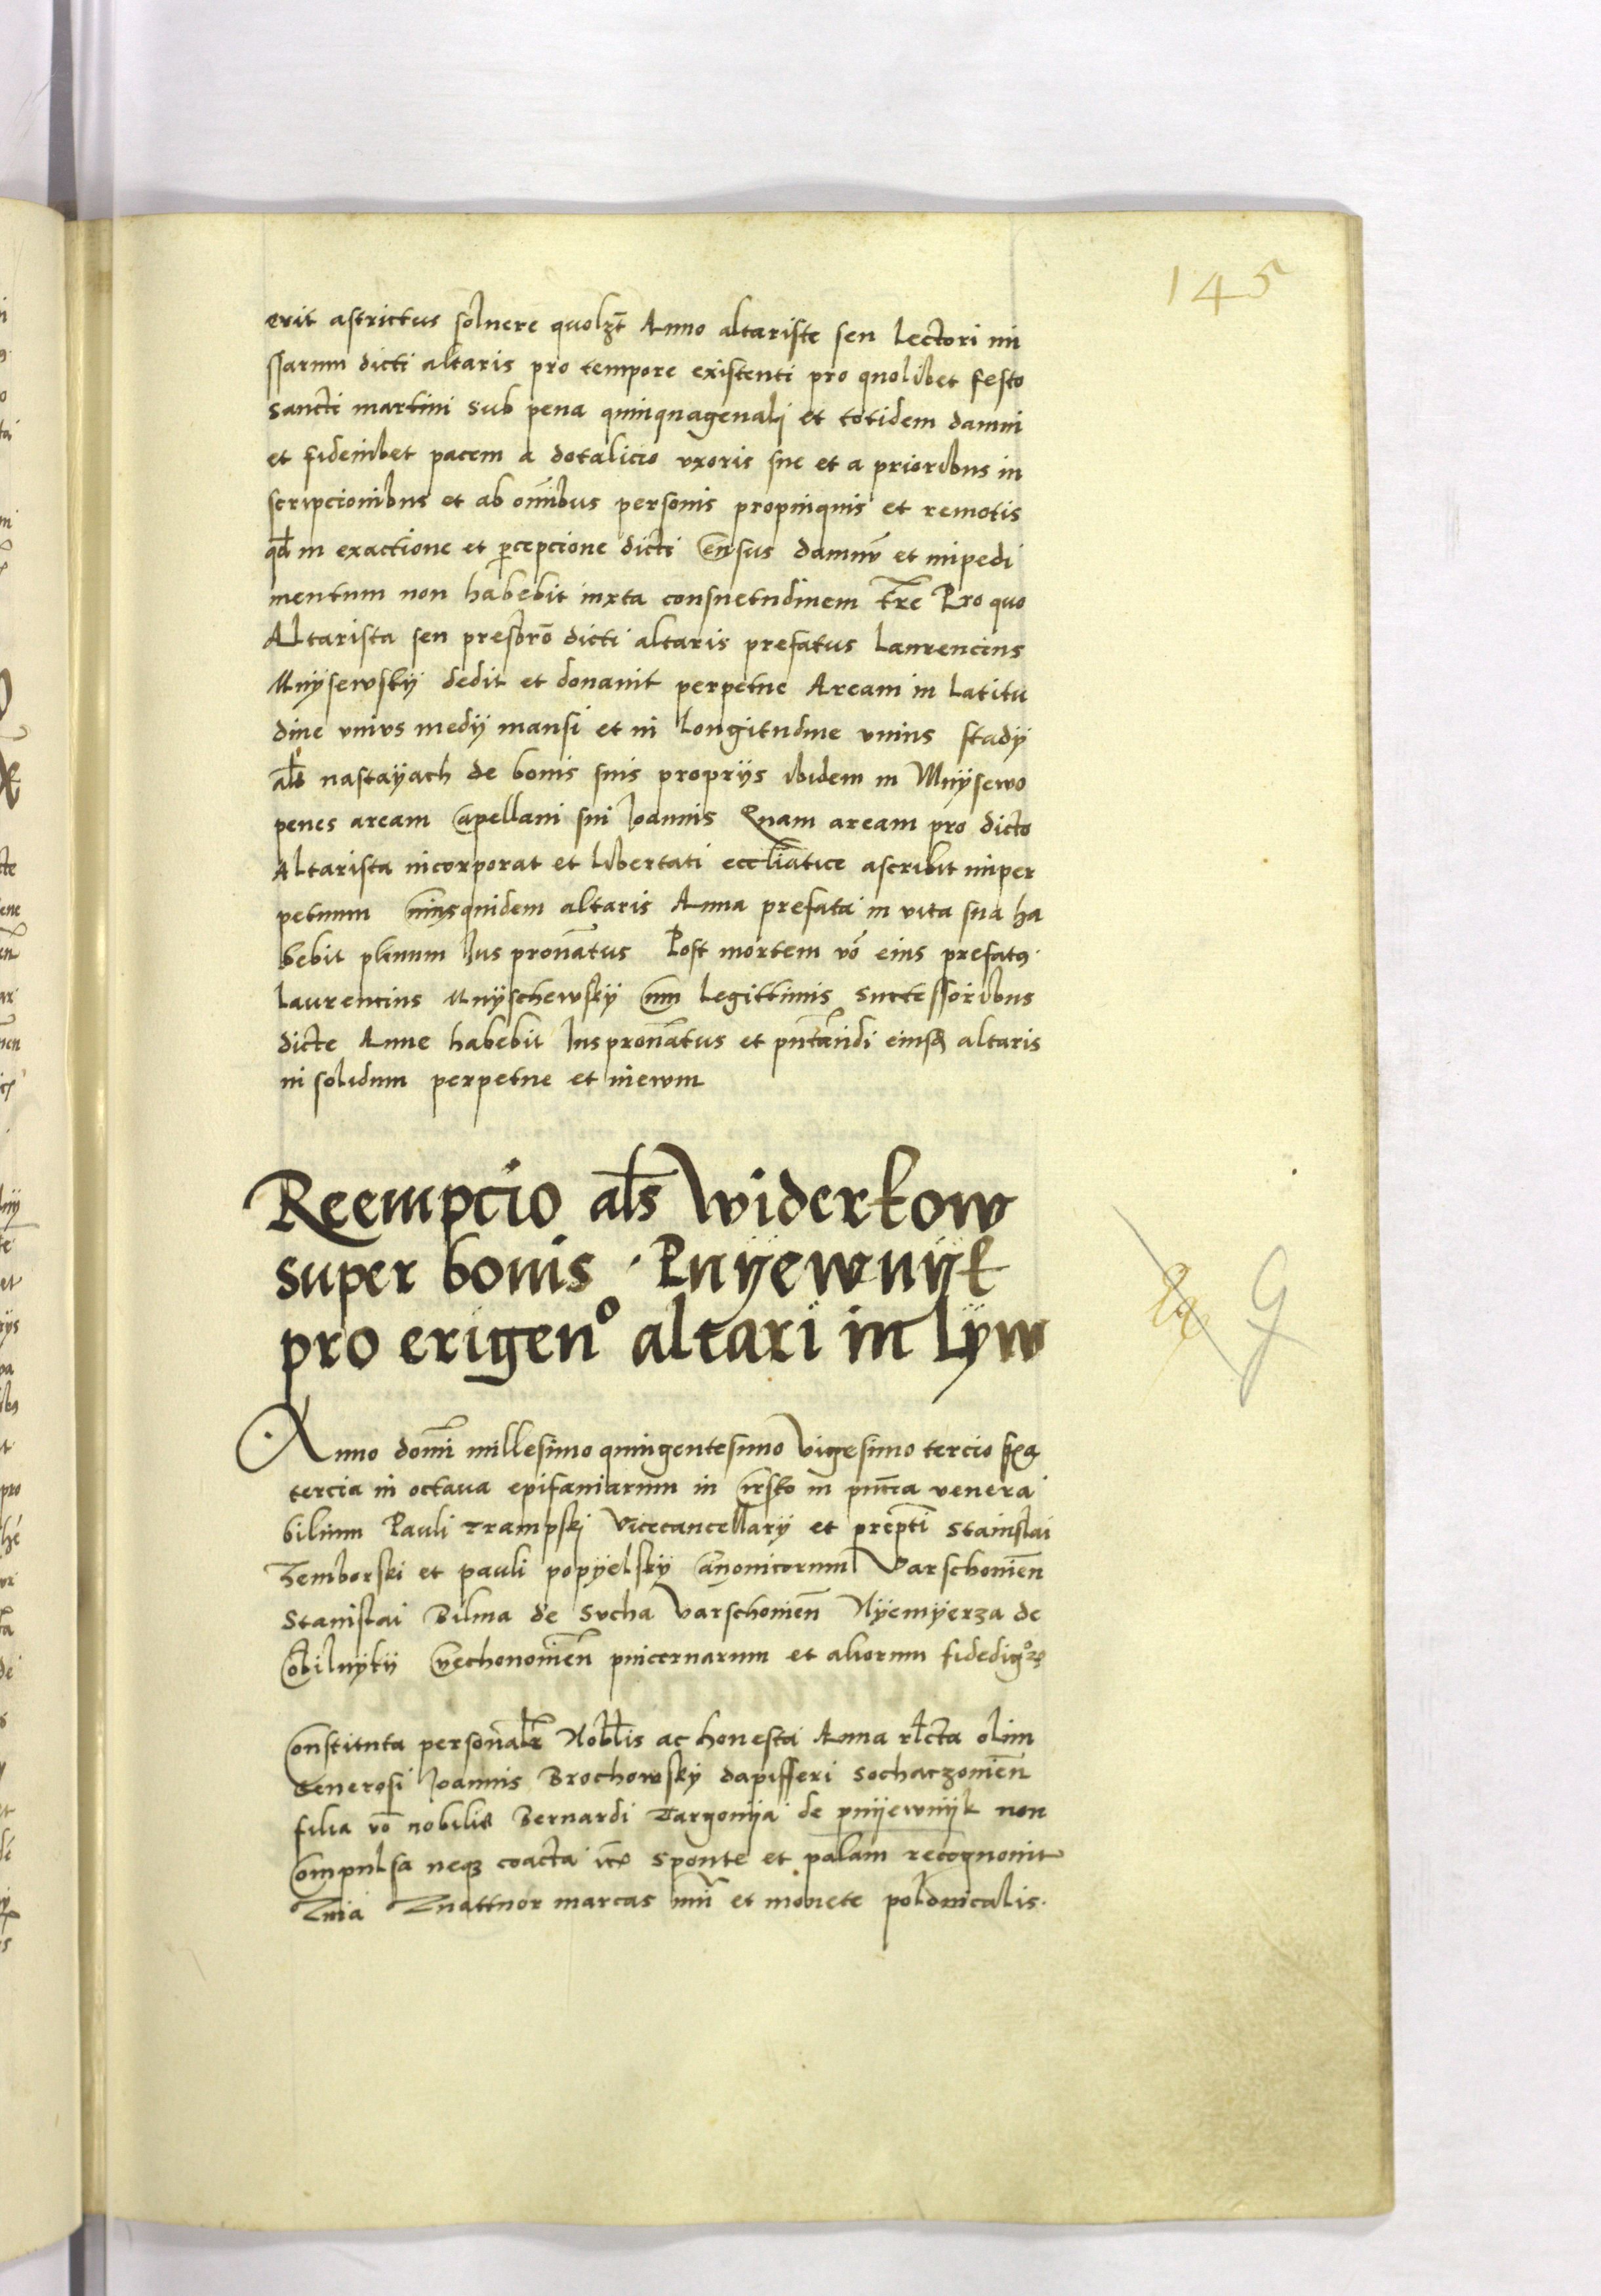 145
erit astrictus soluere quolzt Anno altariste seu Lectori mi
ssarum dicti altaris pro tempore existenti pro quolibet festo
Sancti martini sub pena quinquagenali et totidem damni
et fideiubet pacem a dotalicio vxoris sue et a prioribus in
scripcionibus et ab omibus personis propinquis et remotis
qd in exactione et percepcione dicti Census damnu et impedi
mentum non habebit iuxta consuetudinem tre Pro quo
Altarista seu presbro dicti altaris prefatus Laurencius
Mnÿsewskÿ dedit et donauit perpetue Aream in Latitu
dine vnius medÿ mansi et in Longitudine vnius stadÿ
als nastaÿach de bonis suis proprÿs ibidem in Mnÿsewo
penes aream Capellani sui Joannis Quam aream pro dicto
Altarista incorporat et Libertati eccliatice ascribit imper
petuum Cuiusquidem altaris Anna prefata in vita sua ha
bebit plenum Jus pronatus Post mortem vo eius prefatq
Laurencius Mnÿschewskÿ Cum Legittimis Successoribus
dicte Anne habebit Juspronatus et pntandi eiusd altaris
in solidum perpetue et inewm
Reempcio als Widerkow
super bonis . Pnÿewnÿk
pro erigeno altari in Lÿw
Anno domi millesimo quingentesimo Vigesimo tercio fxa
tercia in octaua epifaniarum in Crsko in pncia venera
bilium Pauli Trampski Vicecancellarÿ et prepti Stanislai
Zemborski et pauli popÿelskÿ Canonicorum Varschouien
Stanislai Bilma de Sucha Varschouien Nÿemÿerza de
Cobilnÿkÿ Ciechonouien pincernarum et aliorum fidedigo
Constituta personalr Nobllis ac honesta Anna rlcta olim
Generosi Joannis Brochowskÿ dapifferi Sochaczouien
filia vo nobilis Bernardi Targonÿa de pnÿewnÿk non
Compulsa neqz coacta Sponte et palam recognouit
Quia Quattuor marcas mu et monete polonicalis.